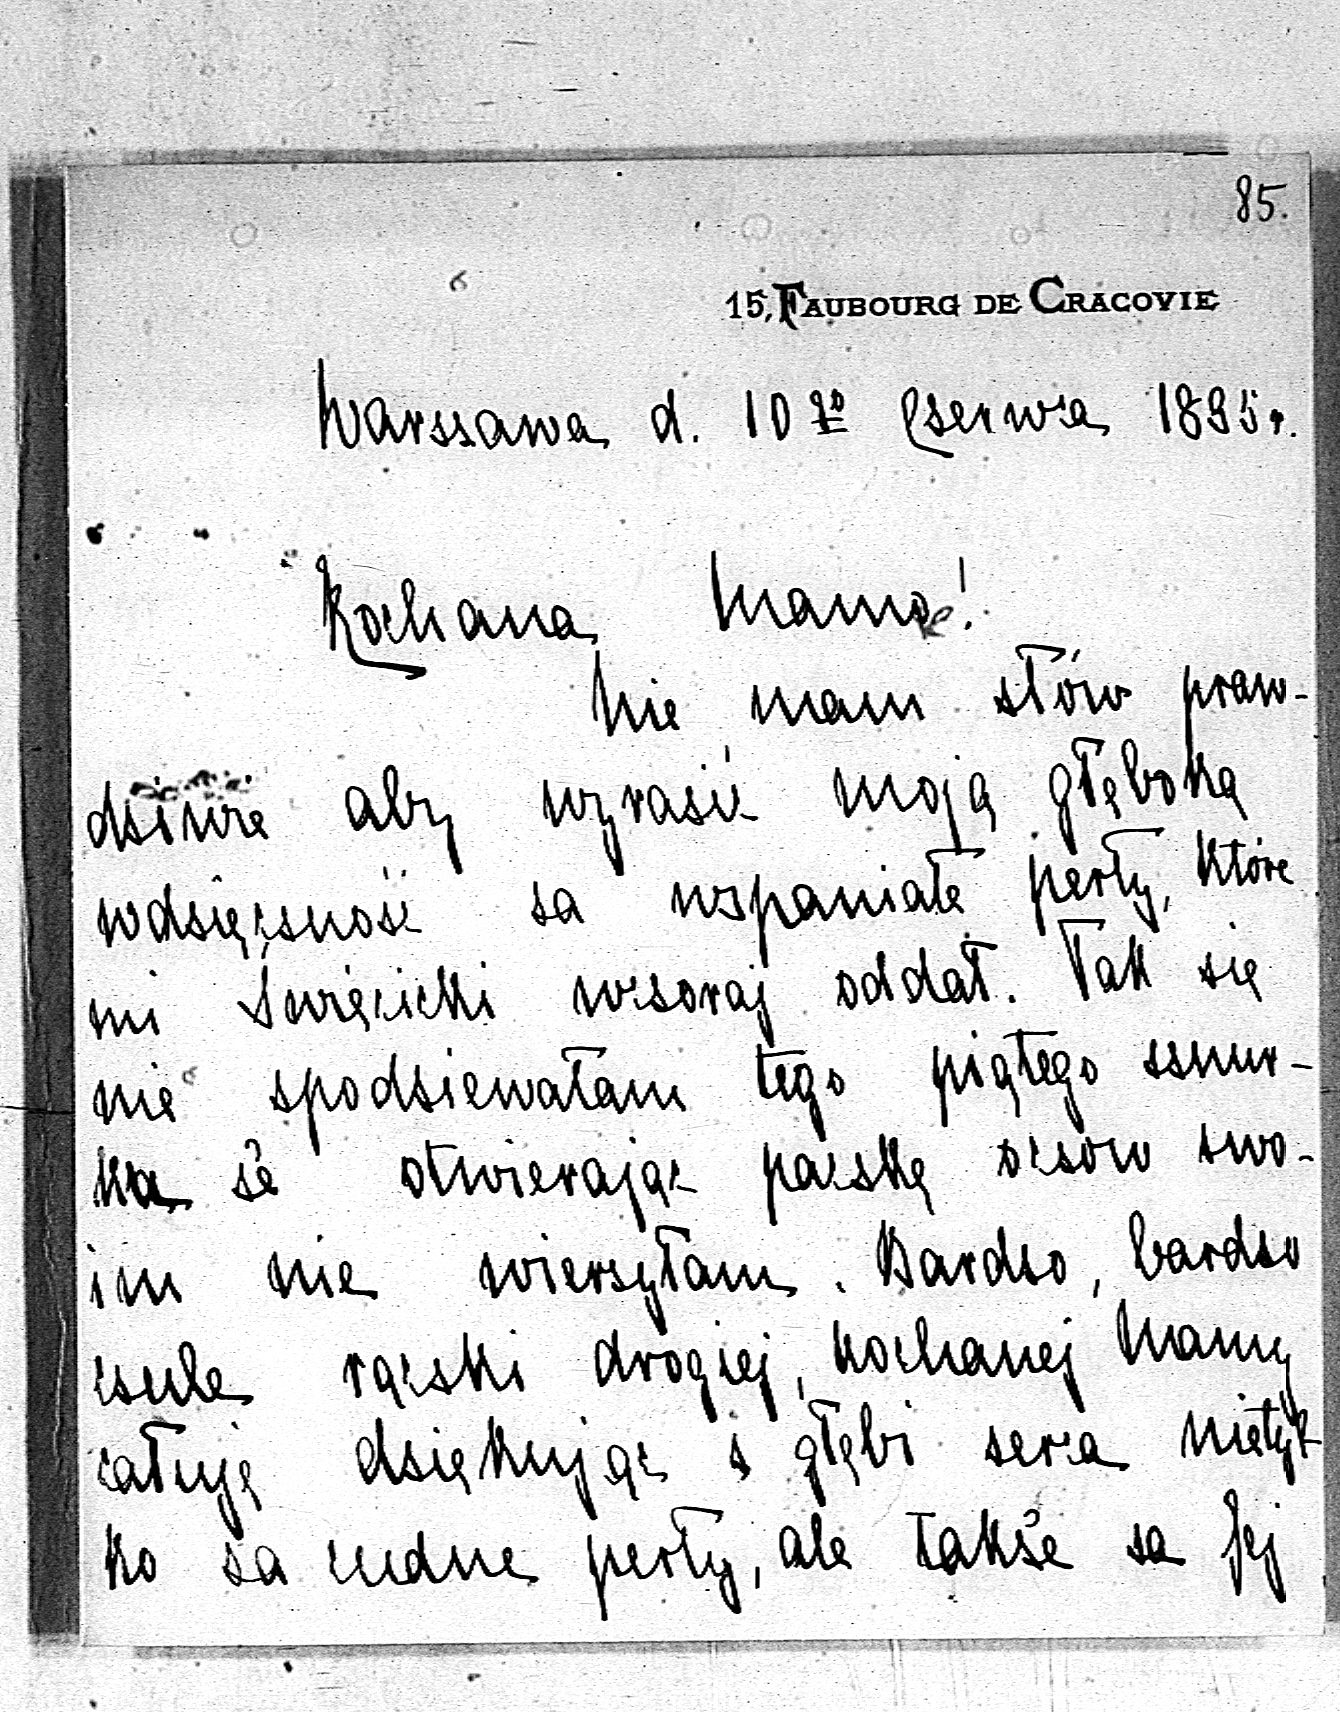 85.
15, FAUBOURG DE CRACOVIE
Warszawa d. 10go Czerwca 1895 r.
Kochana Mamo!
Nie mam słów praw-
dziwie aby wyrazić moją głęboką
wdzięczność za wspaniałe perły, które
mi Święcicki wczoraj oddał. Tak się
nie spodziewałam tego piątego sznur-
ka że otwierając paczkę oczom swo-
im nie wierzyłam. Bardzo, bardzo
czule rączki drogiej, kochanej Mamy
całuję dziękując z głębi serca nietyl-
ko za cudne perły, ale także za Jej